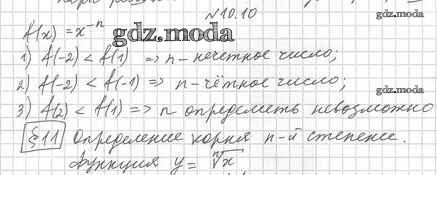 №10.10
f(x) = x⁻ⁿ
gdz.moda
gdz.moda
1) f(-2) < f(1) => n - нечетное число;
2) f(-2) < f(-1) => n - чётное число;
gdz.moda
3) f(2) < f(1) => n определить невозможно
§11 Определение корня n-й степени.
Функция y = ⁿ√x